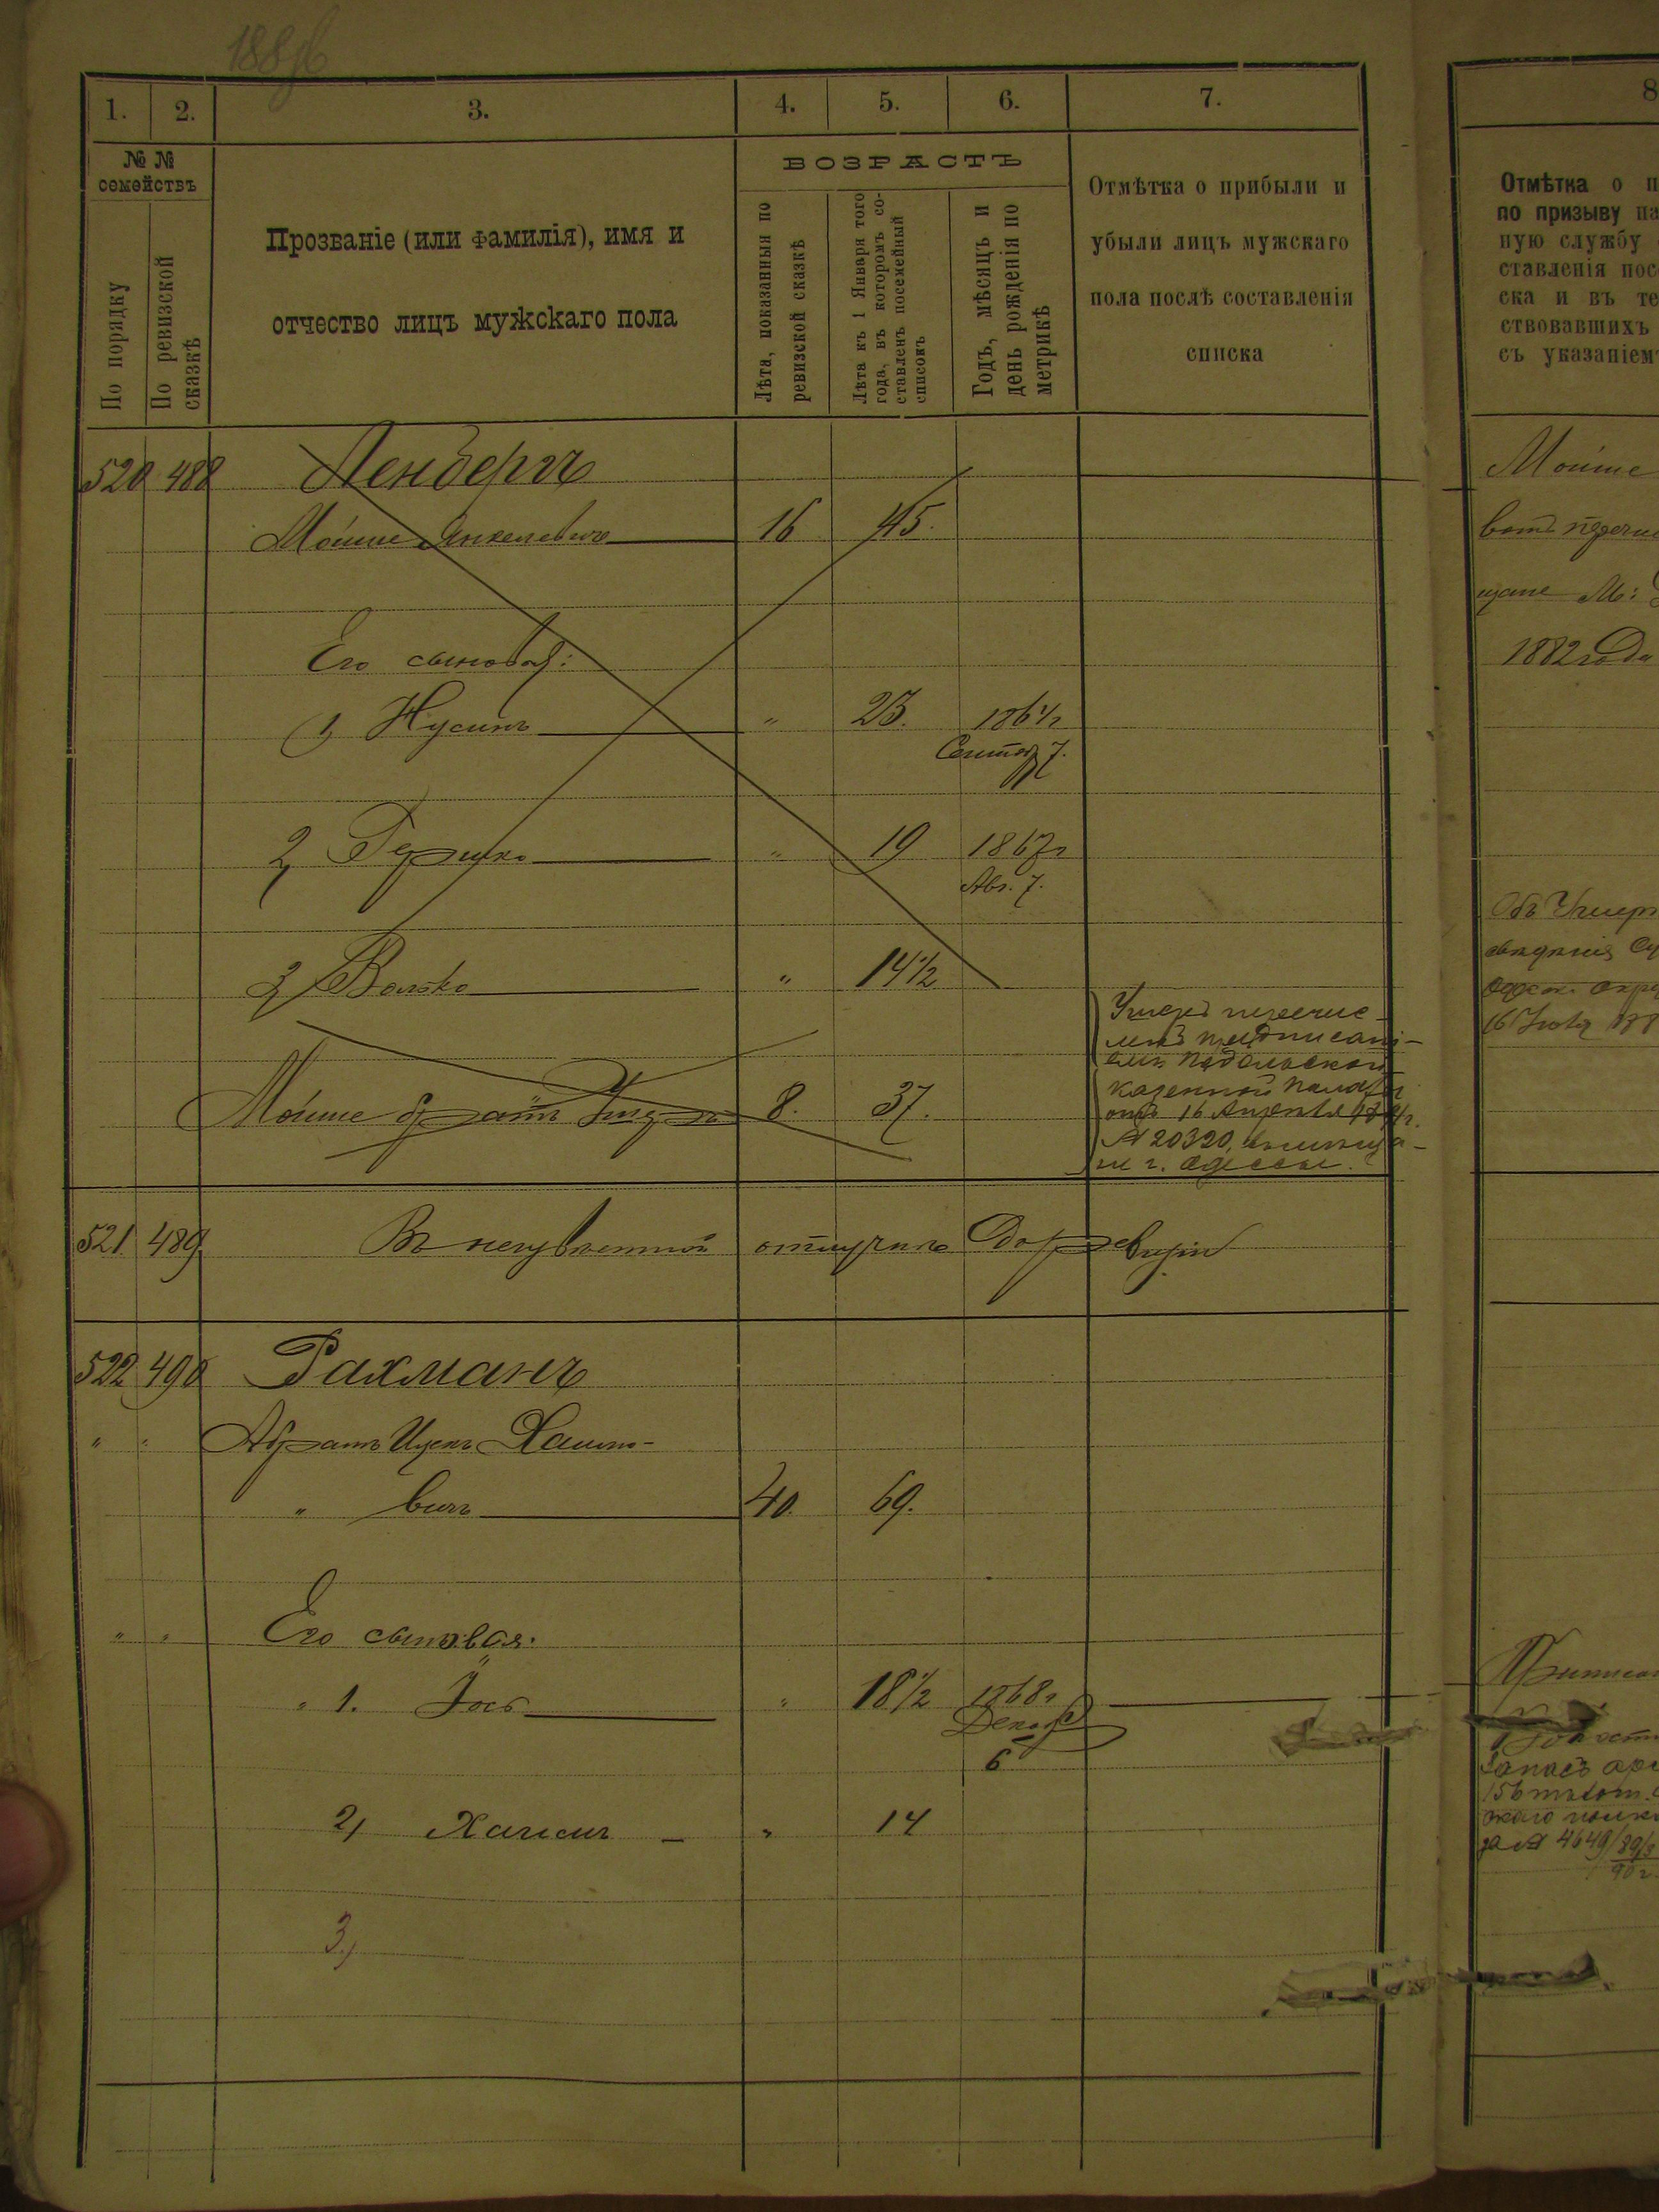 1886
1. 2. 3. 4. 5. 6. 7.
№ №
семействъ
По порядку
По ревизской
сказкѣ
Прозваніе (или фамилія), имя и
отчество лицъ мужскаго пола
ВОЗРАСТЪ
Лѣта, показанныя по
ревизской сказкѣ
Лѣта къ 1 Января того
года, въ которомъ со-
ставленъ посемейный
списокъ
Годъ, мѣсяцъ и
день рожденія по
метрикѣ
Отмѣтка о прибыли и
убыли лицъ мужскаго
пола послѣ составленія
списка
520 488 Ленбергъ
Мойше Янкелевичъ 16 45.
Его сыновья:
1, Нусинъ " 23. 1864г
Сентяб 7.
2, Гершко " 19 1867г
Авг. 7.
3, Волько " 14½
Мойше братъ Ушеръ 8. 37.
Ушеръ перечис-
ленъ предписані-
емъ Подольской
Казенной Палаты
отъ 16 Апрѣля
№ 20320, въ мѣща-
не г. Одессы.
521 489 Въ неизвѣстной отлучкѣ до ревизіи
522 490 Рахманъ
" " Абрамъ Ицекъ Хаимо-
" вичъ 40. 69.
" " Его сыновья:
" 1. Іось " 18½ 1868г
Декаб
6
2, Хаимъ " 14
3,
8
Отмѣтка о п
по призыву на
ную службу
ставленія пос
ска и въ те
ствовавшихъ
съ указаніем
Мойше
щане М:
1882 года
Объ Ушер
Одеск. окр
16 Іюля 188
запасъ ар
за № 4649/89/
90 г.